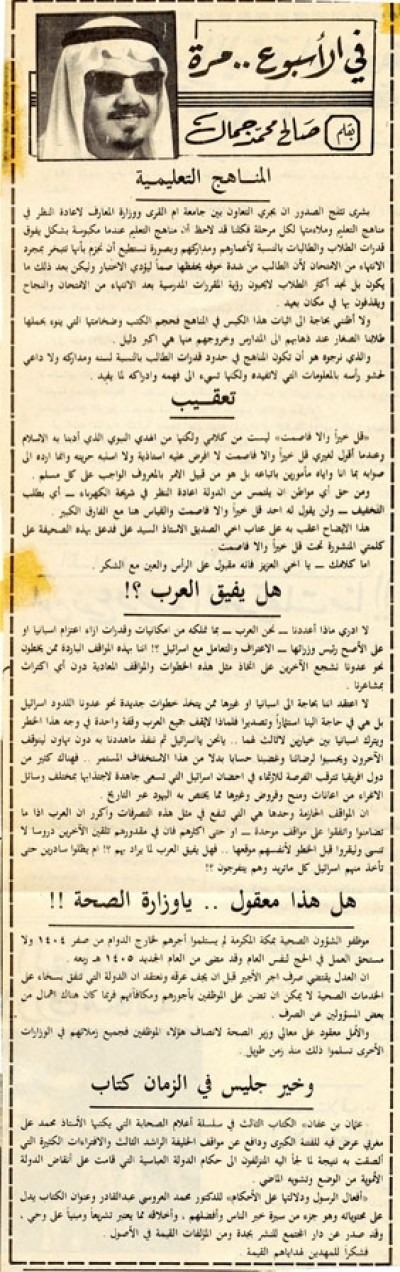 في الأسبوع .. مرة
بقلم صالح محمد جمال
المناهج التعليمية
بشرى تثلج الصدور ان يجري التعاون بين جامعة ام القرى ووزارة المعارف لاعادة النظر في
مناهج التعليم وملاءمتها لكل مرحلة فكلنا قد لاحظ أن مناهج التعليم عندنا مكبوسة بشكل يفوق
قدرات الطلاب والطالبات بالنسبة لأعمارهم ومداركهم وبصورة نستطيع أن نجزم بأنها تتبخر بمجرد
الانتهاء من الامتحان لأن الطالب من شدة خوفه يحفظها صماً ليؤدي الاختبار وليكن بعد ذلك ما
يكون بل نجد أكثر الطلاب لايحبون رؤية المقررات المدرسية بعد الانتهاء من الامتحان والنجاح
ويقذفون بها في مكان بعيد .
ولا أظنني بحاجة الى اثبات هذا الكبس في المناهج فحجم الكتب وضخامتها التي ينوء بحملها
طلابنا الصغار عند ذهابهم الى المدارس وخروجهم منها هي اكبر دليل .
والذي نرجوه هو أن تكون المناهج في حدود قدرات الطالب بالنسبة لسنه ومداركه ولا داعي
لحشو رأسه بالمعلومات التي لاتفيده ولكنها تسيء الى فهمه وادراكه لما يفيد .
تعقيب
«قل خيراً والا فاصمت» ليست من كلامي ولكنها من الهدي النبوي الذي أدبنا به الاسلام
وعندما أقول لغيري قل خيراً والا فاصمت لا افرض عليه استاذية ولا اسلبه حريته وانما ارده الى
صوابه بما انا واياه مأمورين باتباعه بل هو من قبيل الامر بالمعروف الواجب على كل مسلم .
ومن حق أي مواطن ان يلتمس من الدولة اعادة النظر في شريحة الكهرباء ــ أي بطلب
التخفيف ــ ولن يقول له احد قل خيراً والا فاصمت والقياس هنا مع الفارق الكبير .
هذا الايضاح اعقب به على عتاب اخي الصديق الاستاذ السيد على فدعق بهذه الصحيفة على
كلمتي المنشورة تحت قل خيراً والا فاصمت .
اما كلامك ــ يا اخي العزيز فانه مقبول على الرأس والعين مع الشكر .
هل يفيق العرب ؟!
لا ادري ماذا أعددنا ــ نحن العرب ــ بما نملكه من امكانيات وقدرات ازاء اعتزام اسبانيا او
على الأصح رئيس وزرائها ــ الاعتراف والتعامل مع اسرائيل ؟! اننا بهذه المواقف الباردة ممن يخطون
نحو عدونا نشجع الآخرين على اتخاذ مثل هذه الخطوات والمواقف المعادية دون أي اكتراث
بمشاعرنا .
لا اعتقد اننا بحاجة الى اسبانيا او غيرها ممن يتخذ خطوات جديدة نحو عدونا اللدود اسرائيل
بل هي في حاجة الينا استثماراً وتصديرا فلماذا لايقف جميع العرب وقفة واحدة في وجه هذا الخطر
ويترك اسبانيا بين خيارين لاثالث لهما .. يانحن يااسرائيل ثم ننفذ ماهددنا به دون تهاون ليتوقف
الآخرون ويحسبوا لرضائنا وغضبنا حسابا بدلا من هذا الاستخفاف المستمر .. فهناك كثير من
دول افريقيا تترقب الفرصة للارتماء في احضان اسرائيل التي تسعى جاهدة لاجتذابها بمختلف وسائل
الاغراء من اعانات ومنح وقروض وغيرها مما يختص به اليهود عبر التاريخ .
ان المواقف الحازمة وحدها هي التي تنفع في مثل هذه التصرفات وأكرر ان العرب اذا ما
تضامنوا واتفقوا على مواقف موحدة ــ او حتى اكثرهم فان في مقدورهم تلقين الآخرين دروسا لا
تنسى وليقروا قبل الخطو لأنفسهم موقعها .. فهل يفيق العرب لما يراد بهم ؟! ام يظلوا سادرين حتى
تأخذ منهم اسرائيل كل ماتريد وهم يتفرجون ؟!
هل هذا معقول .. ياوزارة الصحة !!
موظفو الشؤون الصحية بمكة المكرمة لم يستلموا أجرهم لخارج الدوام من صفر ١٤٠٤ ولا
مستحق العمل في الحج لنفس العام وقد مضى من العام الجديد ١٤٠٥ هـ ربعه .
ان العدل يقتضي صرف اجر الأجير قبل ان يجف عرقه ونعتقد ان الدولة التي تنفق بسخاء على
الخدمات الصحية لا يمكن ان تضن على الموظفين بأجورهم ومكافآتهم فربما كان هناك اهمال من
بعض المسؤولين عن الصرف .
والأمل معقود على معالي وزير الصحة لانصاف هؤلاء الموظفين فجميع زملائهم في الوزارات
الأخرى تسلموا ذلك منذ زمن طويل .
وخير جليس في الزمان كتاب
عثمان بن عفان» الكتاب الثالث في سلسلة أعلام الصحابة التي يكتبها الأستاذ محمد على
مغربي عرض فيه للفتنة الكبرى ودافع عن مواقف الخليفة الراشد الثالث والافتراءات الكثيرة التي
ألصقت به نتيجة لما لجأ اليه المتزلفون الى حكام الدولة العباسية التي قامت على أنقاض الدولة
الأموية من الوضع وتشويه الماضي .
«أفعال الرسول ودلالتها على الأحكام» للدكتور محمد العروسي عبدالقادر وعنوان الكتاب يدل
على محتوياته وهو جزء من سيرة خير الناس وأفضلهم ، وأخلاقه مما يعتبر تشريعاً ومبنياً على وحي ،
وقد صدر عن دار المجتمع للنشر بجدة ومن المؤلفات القيمة في الأصول .
فشكراً للمهدين لهداياهم القيمة .